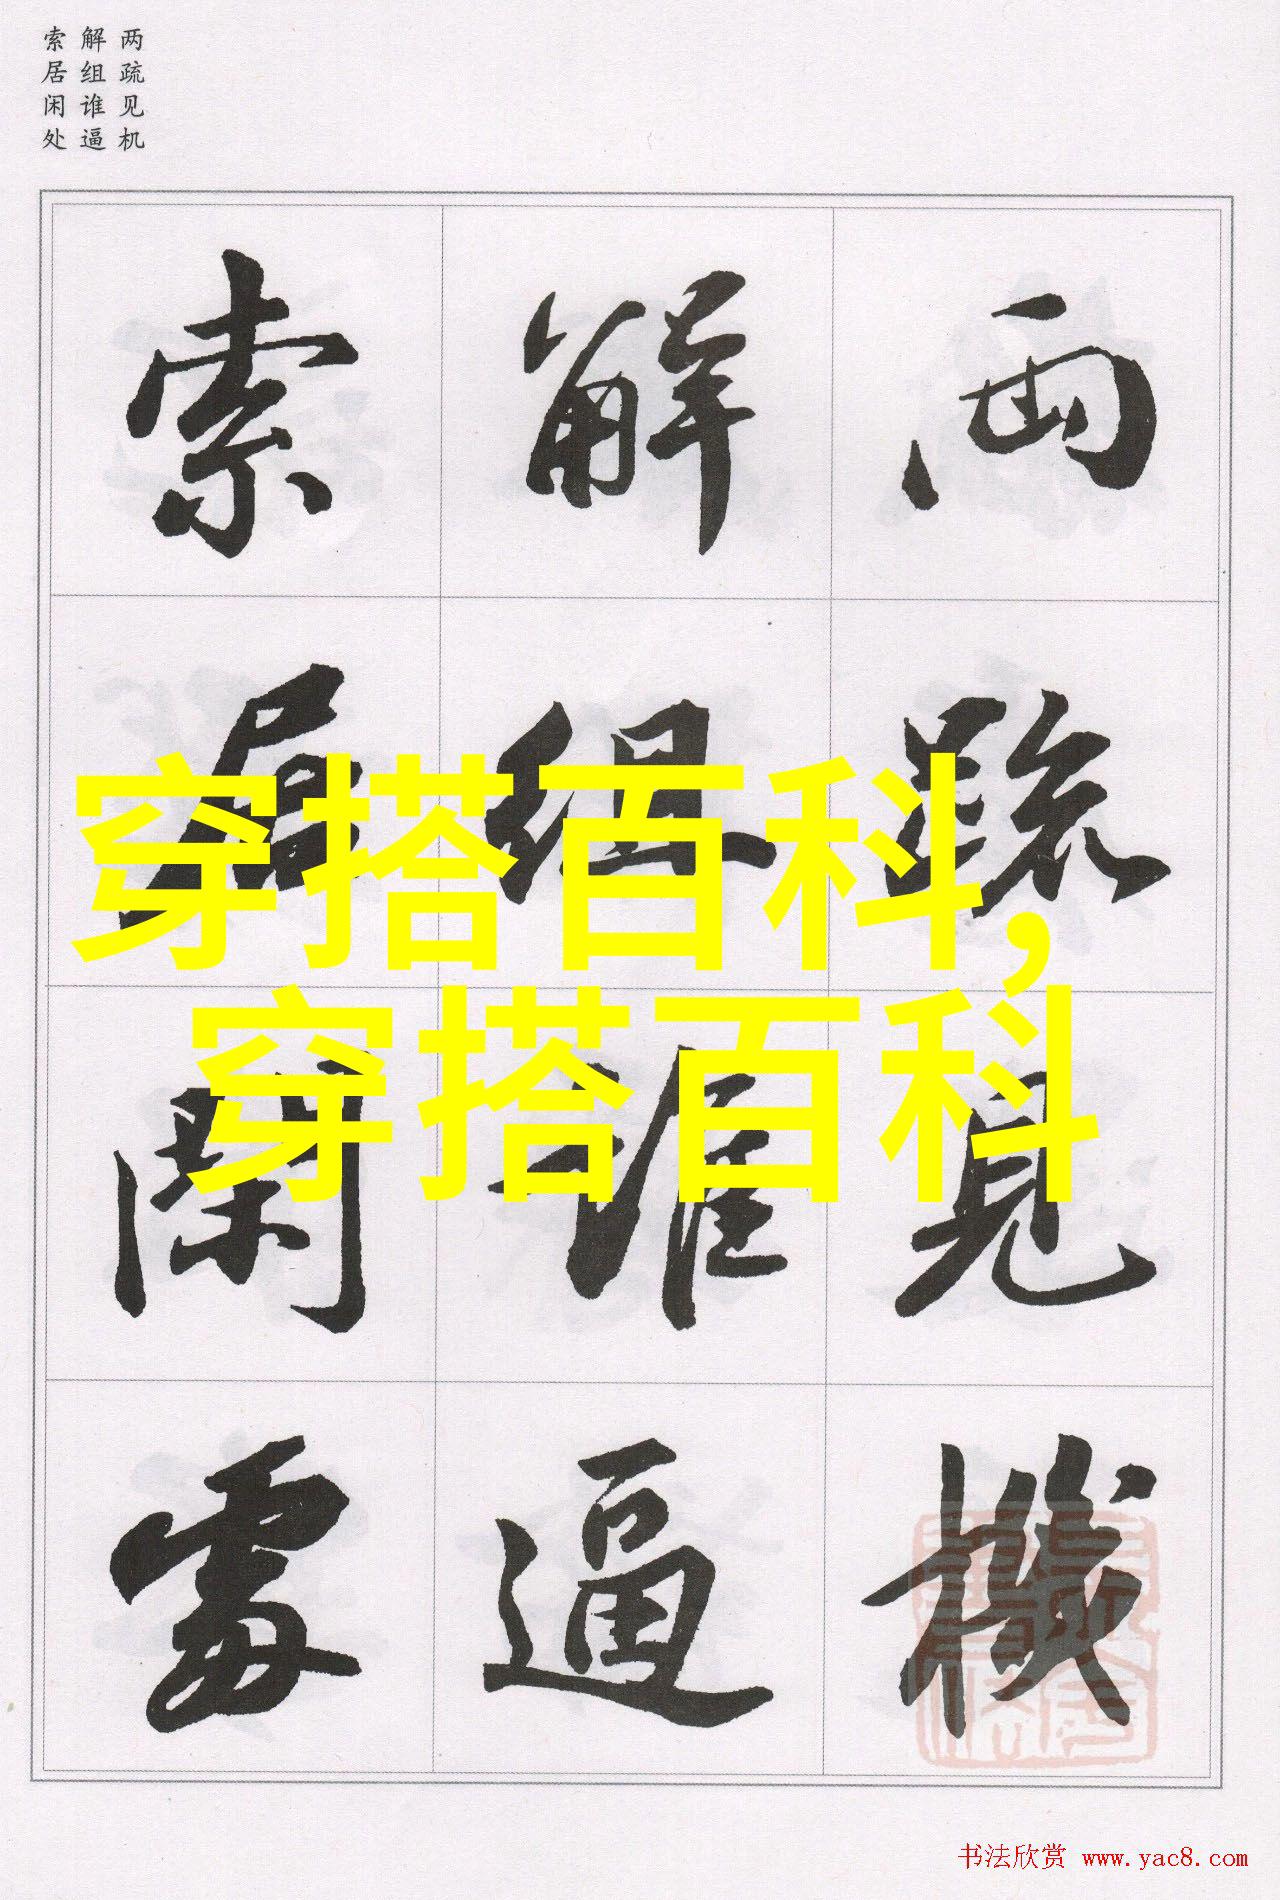 两疏见机
解组谁逼
索居闲处
两疏見機
解組谁逼
索居閑處
穿搭百科,
穿搭百科
书法欣赏 www.yac8.com